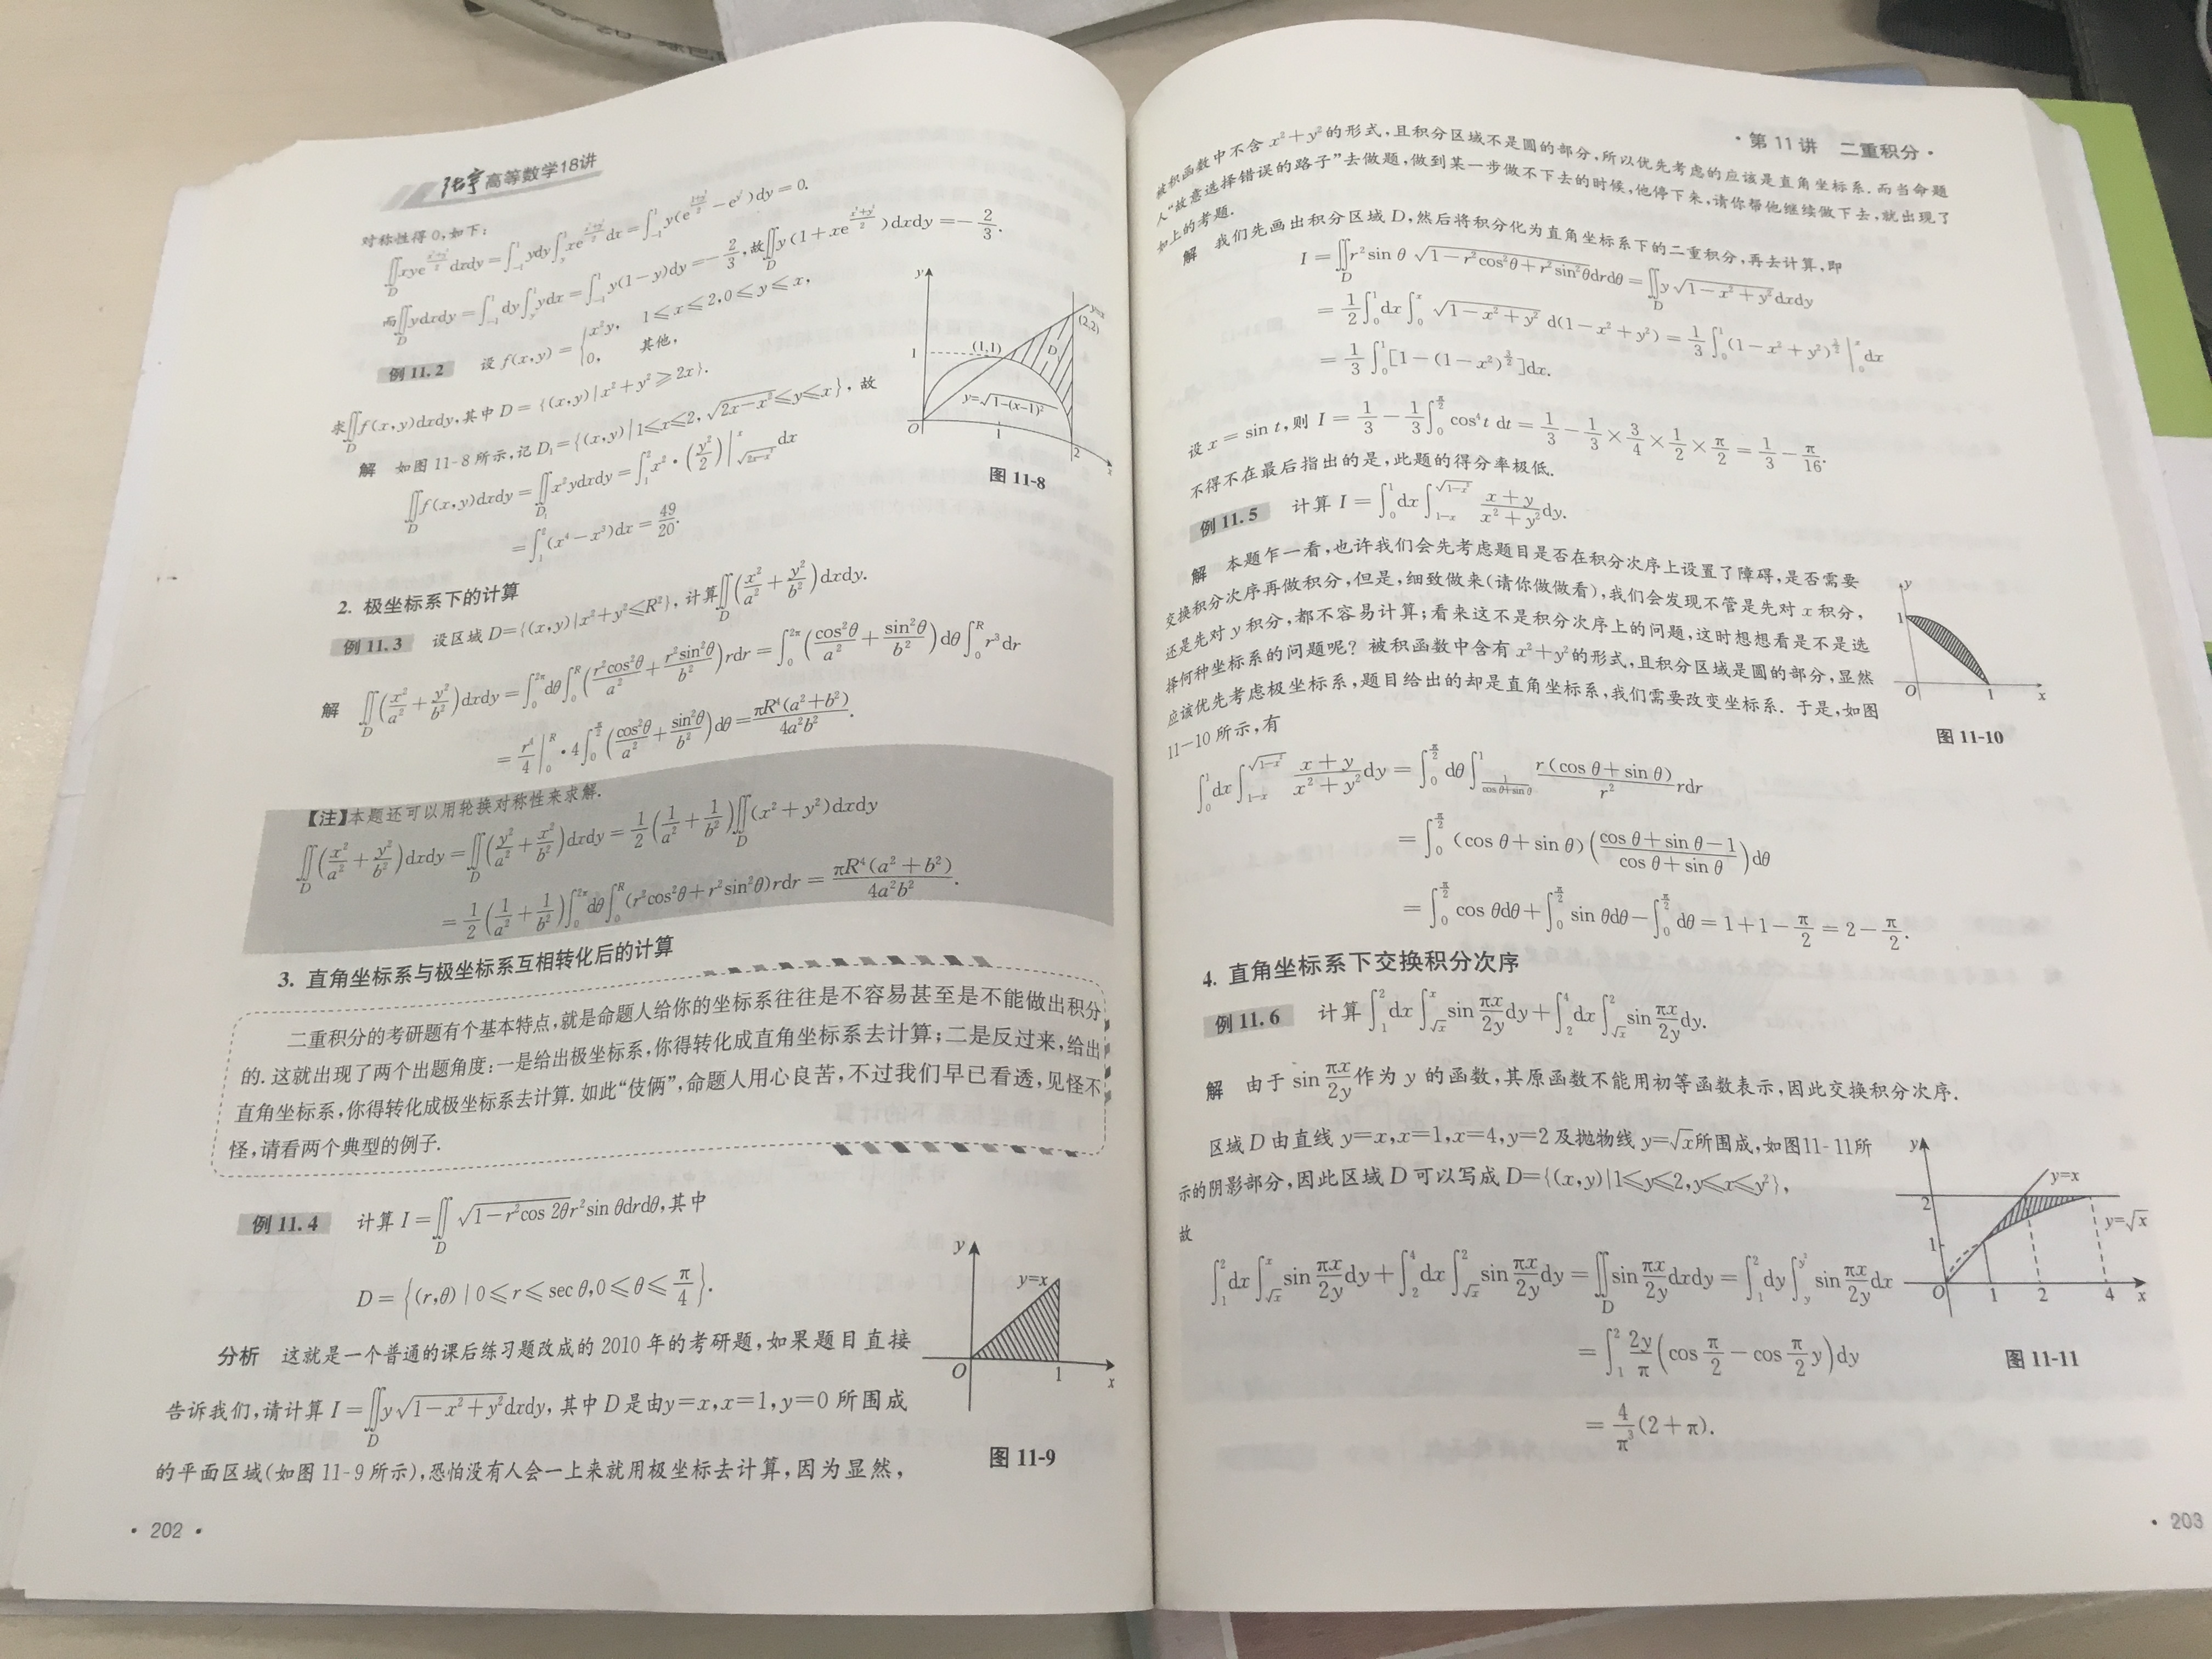 张宇高等数学18讲
对称性得0,如下:
∬_D xye^{(x²+y²)/2}dxdy=∫_{-1}^{1}ydy∫_y^1 xe^{(x²+y²)/2}dx=∫_{-1}^{1}y(e^{(1+y²)/2}-e^{y²})dy=0.
而∬_D ydxdy=∫_{-1}^{1}dy∫_y^1 ydx=∫_{-1}^{1}y(1-y)dy=-2/3,故∬_D y(1+xe^{(x²+y²)/2})dxdy=-2/3.
例11.2 设f(x,y)={x²y, 1≤x≤2,0≤y≤x,
0, 其他,
求∬_D f(x,y)dxdy,其中D={(x,y)|x²+y²≥2x}.
解 如图11-8所示,记D₁={(x,y)|1≤x≤2,√(2x-x²)≤y≤x},故
∬_D f(x,y)dxdy=∬_{D₁}x²ydxdy=∫_1^2 x²·(y²/2)|_{√(2x-x²)}^x dx
=∫_1^2(x⁴-x³)dx=49/20.
y
y=x
(2,2)
(1,1)
D₁
1
y=√(1-(x-1)²)
O
1
2
x
图11-8
2. 极坐标系下的计算
例11.3 设区域D={(x,y)|x²+y²≤R²},计算∬_D(x²/a²+y²/b²)dxdy.
解 ∬_D(x²/a²+y²/b²)dxdy=∫_0^{2π}dθ∫_0^R(r²cos²θ/a²+r²sin²θ/b²)rdr=∫_0^{2π}(cos²θ/a²+sin²θ/b²)dθ∫_0^R r³dr
=r⁴/4|_0^R·4∫_0^{π/2}(cos²θ/a²+sin²θ/b²)dθ=πR⁴(a²+b²)/4a²b².
【注】本题还可以用轮换对称性来求解.
∬_D(x²/a²+y²/b²)dxdy=∬_D(y²/a²+x²/b²)dxdy=1/2(1/a²+1/b²)∬_D(x²+y²)dxdy
=1/2(1/a²+1/b²)∫_0^{2π}dθ∫_0^R(r²cos²θ+r²sin²θ)rdr=πR⁴(a²+b²)/4a²b².
3. 直角坐标系与极坐标系互相转化后的计算
二重积分的考研题有个基本特点,就是命题人给你的坐标系往往是不容易甚至是不能做出积分
的.这就出现了两个出题角度:一是给出极坐标系,你得转化成直角坐标系去计算;二是反过来,给出
直角坐标系,你得转化成极坐标系去计算.如此“伎俩”,命题人用心良苦,不过我们早已看透,见怪不
怪,请看两个典型的例子.
例11.4 计算I=∬_D √(1-r²cos 2θ)r²sin θdrdθ,其中
D={(r,θ)|0≤r≤sec θ,0≤θ≤π/4}.
分析 这就是一个普通的课后练习题改成的2010年的考研题,如果题目直接
告诉我们,请计算I=∬_D y√(1-x²+y²)dxdy,其中D是由y=x,x=1,y=0所围成
的平面区域(如图11-9所示),恐怕没有人会一上来就用极坐标去计算,因为显然,
y
y=x
O
1
x
图11-9
· 202 ·
·第11讲 二重积分·
被积函数中不含x²+y²的形式,且积分区域不是圆的部分,所以优先考虑的应该是直角坐标系.而当命题
人“故意选择错误的路子”去做题,做到某一步做不下去的时候,他停下来,请你帮他继续做下去,就出现了
如上的考题.
解 我们先画出积分区域D,然后将积分化为直角坐标系下的二重积分,再去计算,即
I=∬_D r²sin θ√(1-r²cos²θ+r²sin²θ)drdθ=∬_D y√(1-x²+y²)dxdy
=1/2∫_0^1dx∫_0^x √(1-x²+y²)d(1-x²+y²)=1/3∫_0^1(1-x²+y²)^{3/2}|_0^x dx
=1/3∫_0^1[1-(1-x²)^{3/2}]dx.
设x=sin t,则I=1/3-1/3∫_0^{π/2}cos⁴t dt=1/3-1/3×3/4×1/2×π/2=1/3-π/16.
不得不在最后指出的是,此题的得分率极低.
例11.5 计算I=∫_0^1dx∫_{1-x}^{√(1-x²)} (x+y)/(x²+y²)dy.
解 本题乍一看,也许我们会先考虑题目是否在积分次序上设置了障碍,是否需要
交换积分次序再做积分,但是,细致做来(请你做做看),我们会发现不管是先对x积分,
还是先对y积分,都不容易计算;看来这不是积分次序上的问题,这时想想看是不是选
择何种坐标系的问题呢?被积函数中含有x²+y²的形式,且积分区域是圆的部分,显然
应该优先考虑极坐标系,题目给出的却是直角坐标系,我们需要改变坐标系.于是,如图
11-10所示,有
y
1
O
1
x
图11-10
∫_0^1dx∫_{1-x}^{√(1-x²)} (x+y)/(x²+y²)dy=∫_0^{π/2}dθ∫_{1/(cos θ+sin θ)}^1 r(cos θ+sin θ)/r² rdr
=∫_0^{π/2}(cos θ+sin θ)((cos θ+sin θ-1)/(cos θ+sin θ))dθ
=∫_0^{π/2}cos θdθ+∫_0^{π/2}sin θdθ-∫_0^{π/2}dθ=1+1-π/2=2-π/2.
4. 直角坐标系下交换积分次序
例11.6 计算∫_1^2dx∫_{√x}^x sin πx/2y dy+∫_2^4dx∫_{√x}^2 sin πx/2y dy.
解 由于sin πx/2y作为y的函数,其原函数不能用初等函数表示,因此交换积分次序.
区域D由直线y=x,x=1,x=4,y=2及抛物线y=√x所围成,如图11-11所
示的阴影部分,因此区域D可以写成D={(x,y)|1≤y≤2,y≤x≤y²},
故
∫_1^2dx∫_{√x}^x sin πx/2y dy+∫_2^4dx∫_{√x}^2 sin πx/2y dy=∬_D sin πx/2y dxdy=∫_1^2dy∫_y^{y²} sin πx/2y dx
=∫_1^2 2y/π(cos π/2-cos π/2 y)dy
=4/π³(2+π).
y
y=x
2
y=√x
1
O
1
2
4
x
图11-11
· 203